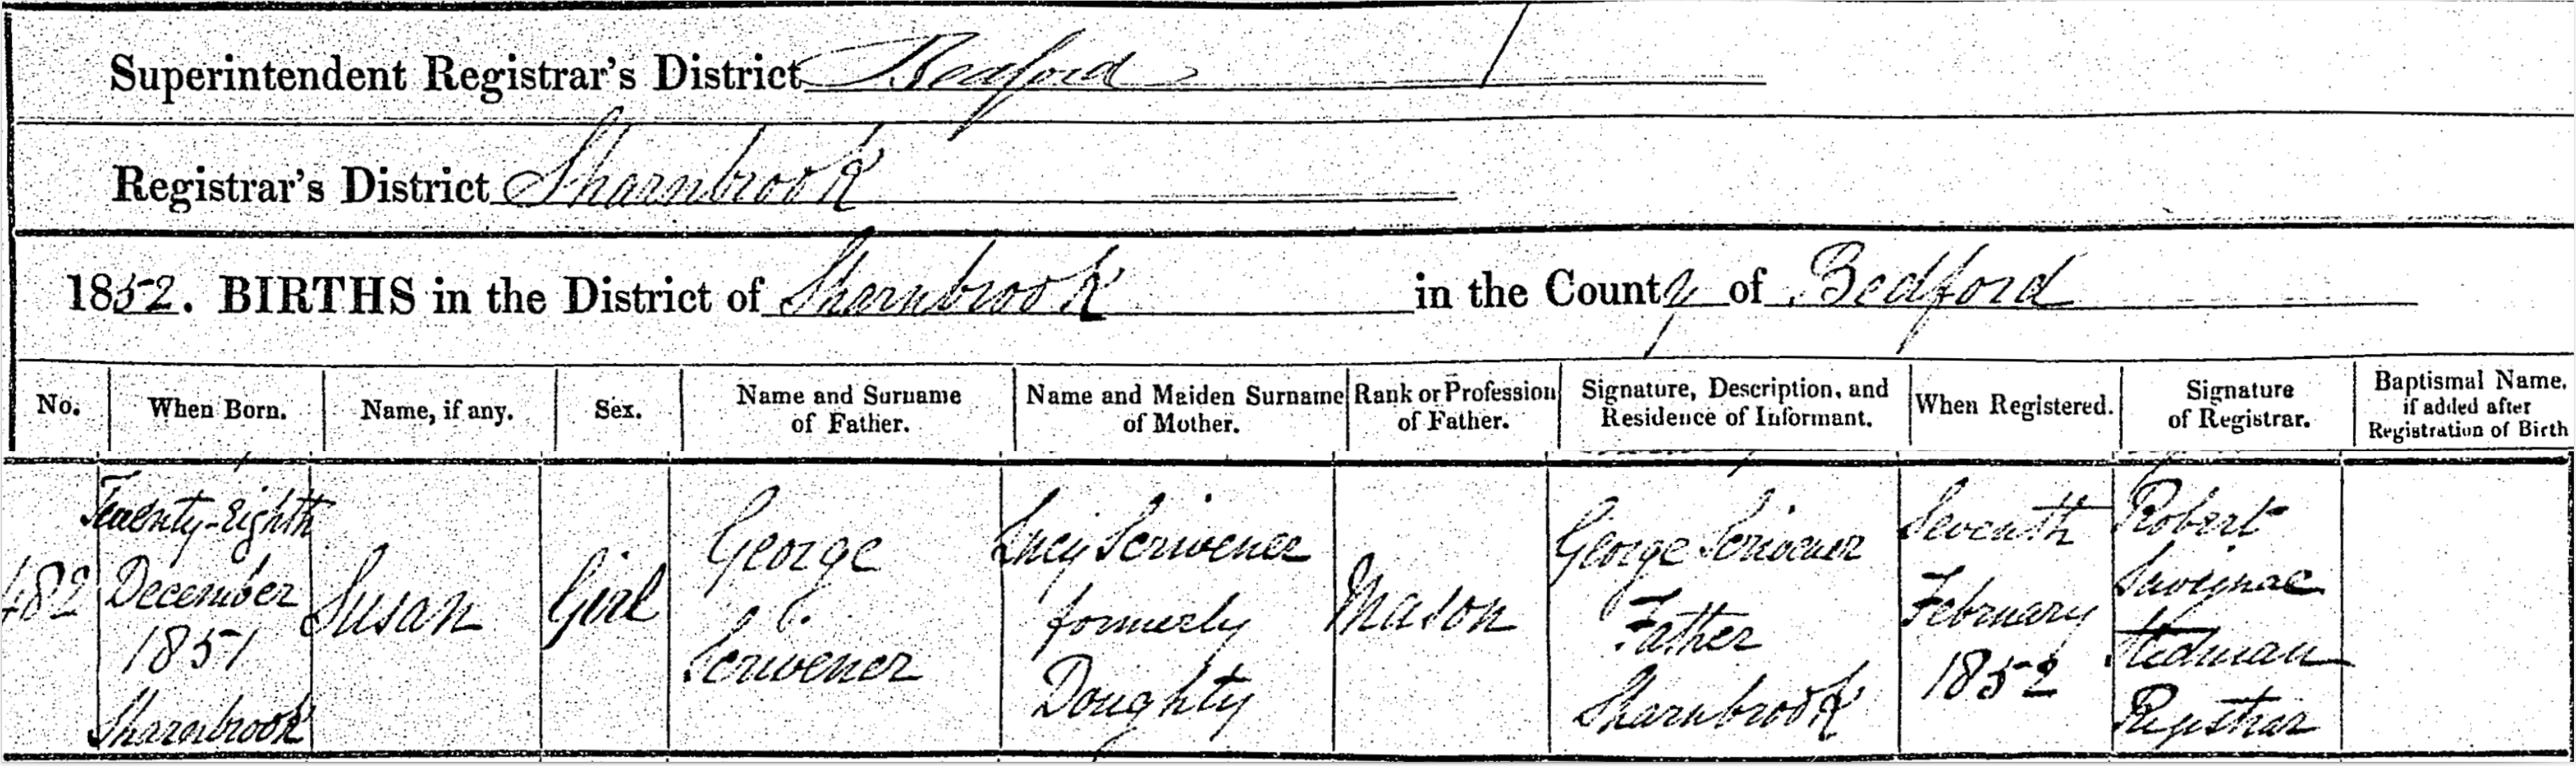 Superintendent Registrar's District Bedford
Registrar's District Sharnbrook
1852. BIRTHS in the District of Sharnbrook in the County of Bedford
No. When Born. Name, if any. Sex. Name and Surname of Father. Name and Maiden Surname of Mother. Rank or Profession of Father. Signature, Description, and Residence of Informant. When Registered. Signature of Registrar. Baptismal Name, if added after Registration of Birth
482
Twenty-Eighth
December
1851
Sharnbrook
Susan
Girl
George
Scrivener
Lucy Scrivener
formerly
Doughty
Mason
George Scrivener
Father
Sharnbrook
Seventh
February
1852
Robert
Stedman
Registrar